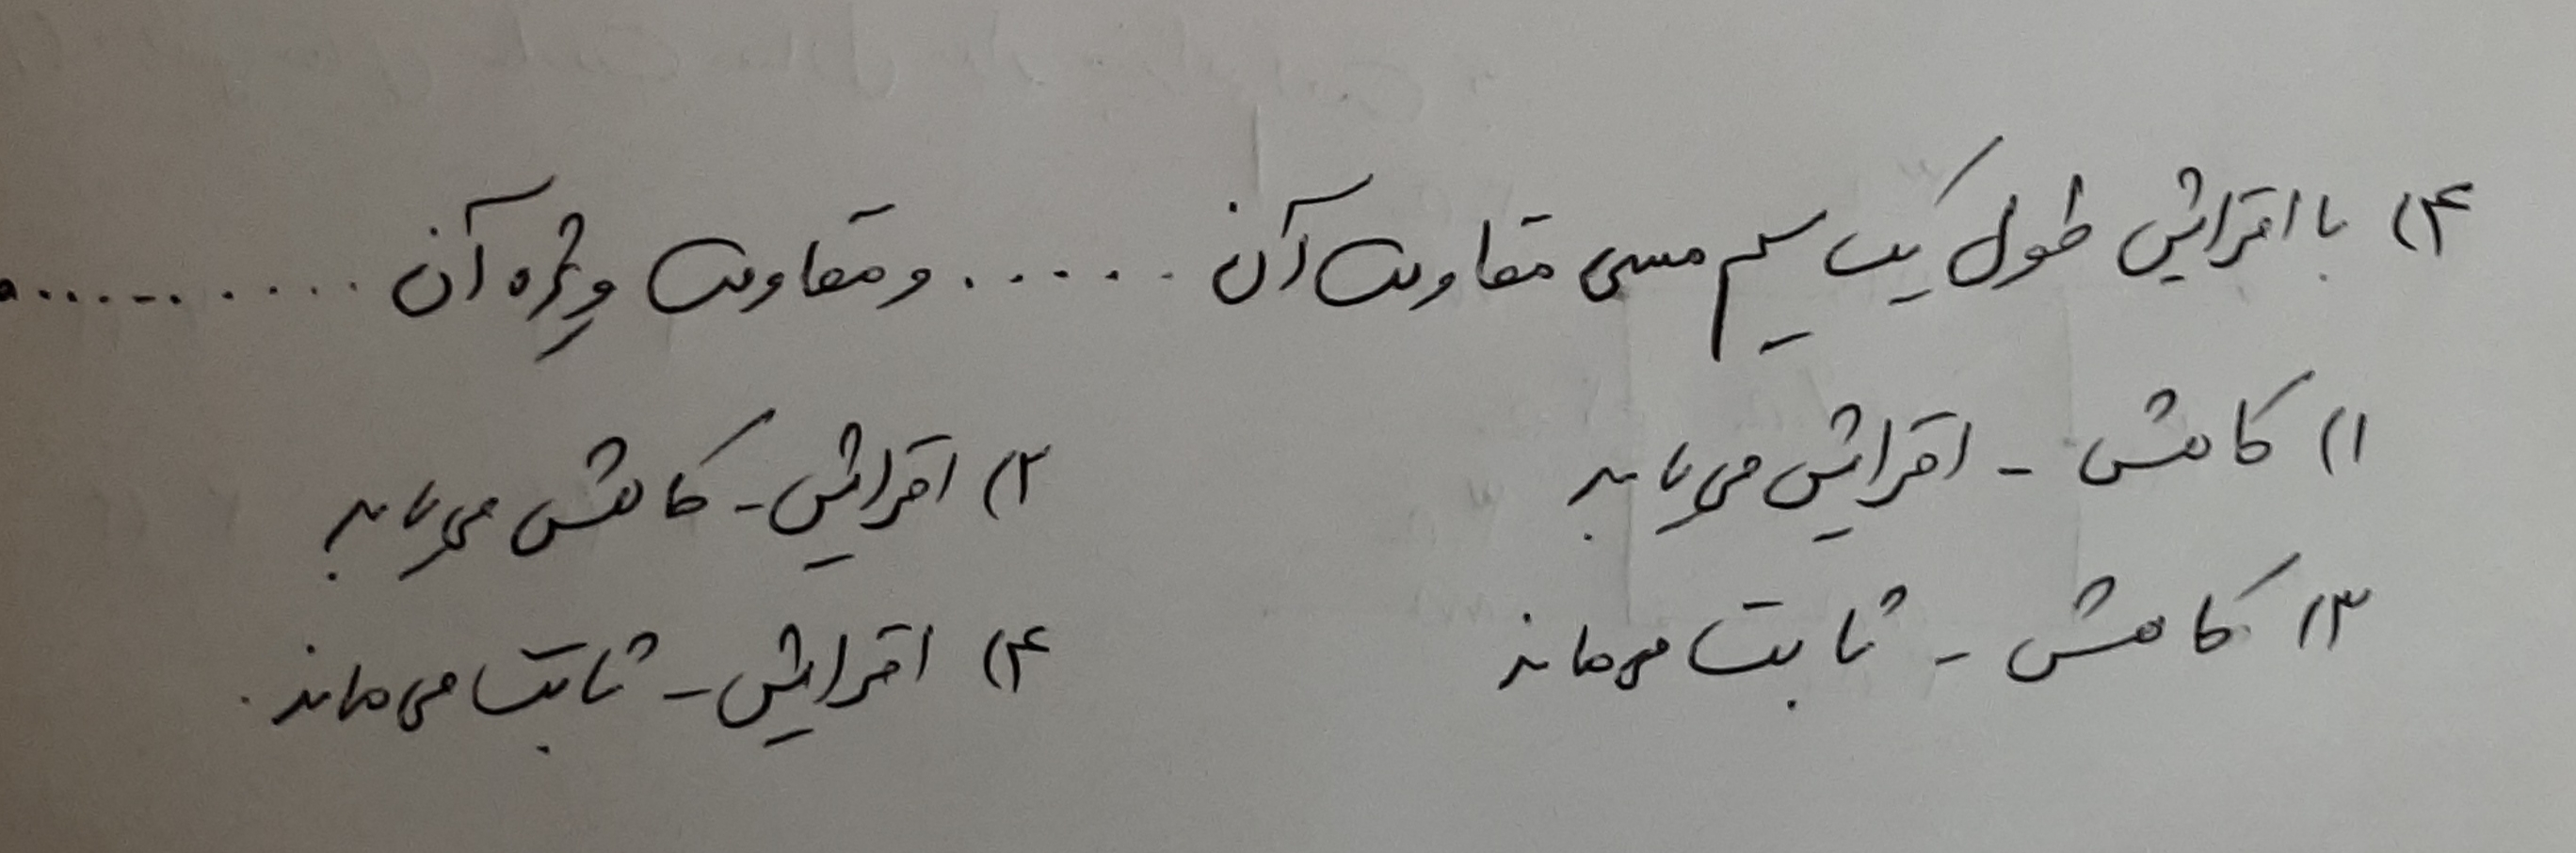 ۴) با افزایش طول یک سیم مسی مقاومت آن ...... و مقاومت ویژه آن ...........
۱) کاهش - افزایش می‌یابد ۲) افزایش - کاهش می‌یابد
۳) کاهش - ثابت می‌ماند ۴) افزایش - ثابت می‌ماند.